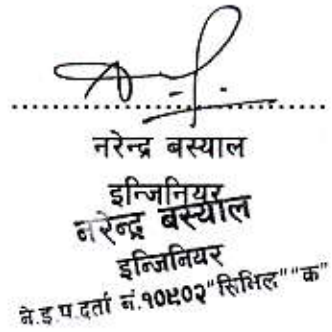 नरेन्द्र बस्याल
इन्जिनियर
नरेन्द्र बस्याल
इन्जिनियर
ने.इ.प.दर्ता नं.१०९०२"सिभिल""क"